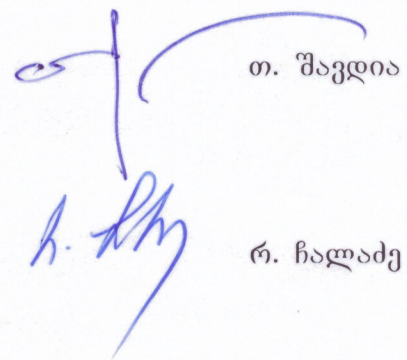 თ. შავდია
რ. ჩალაძე